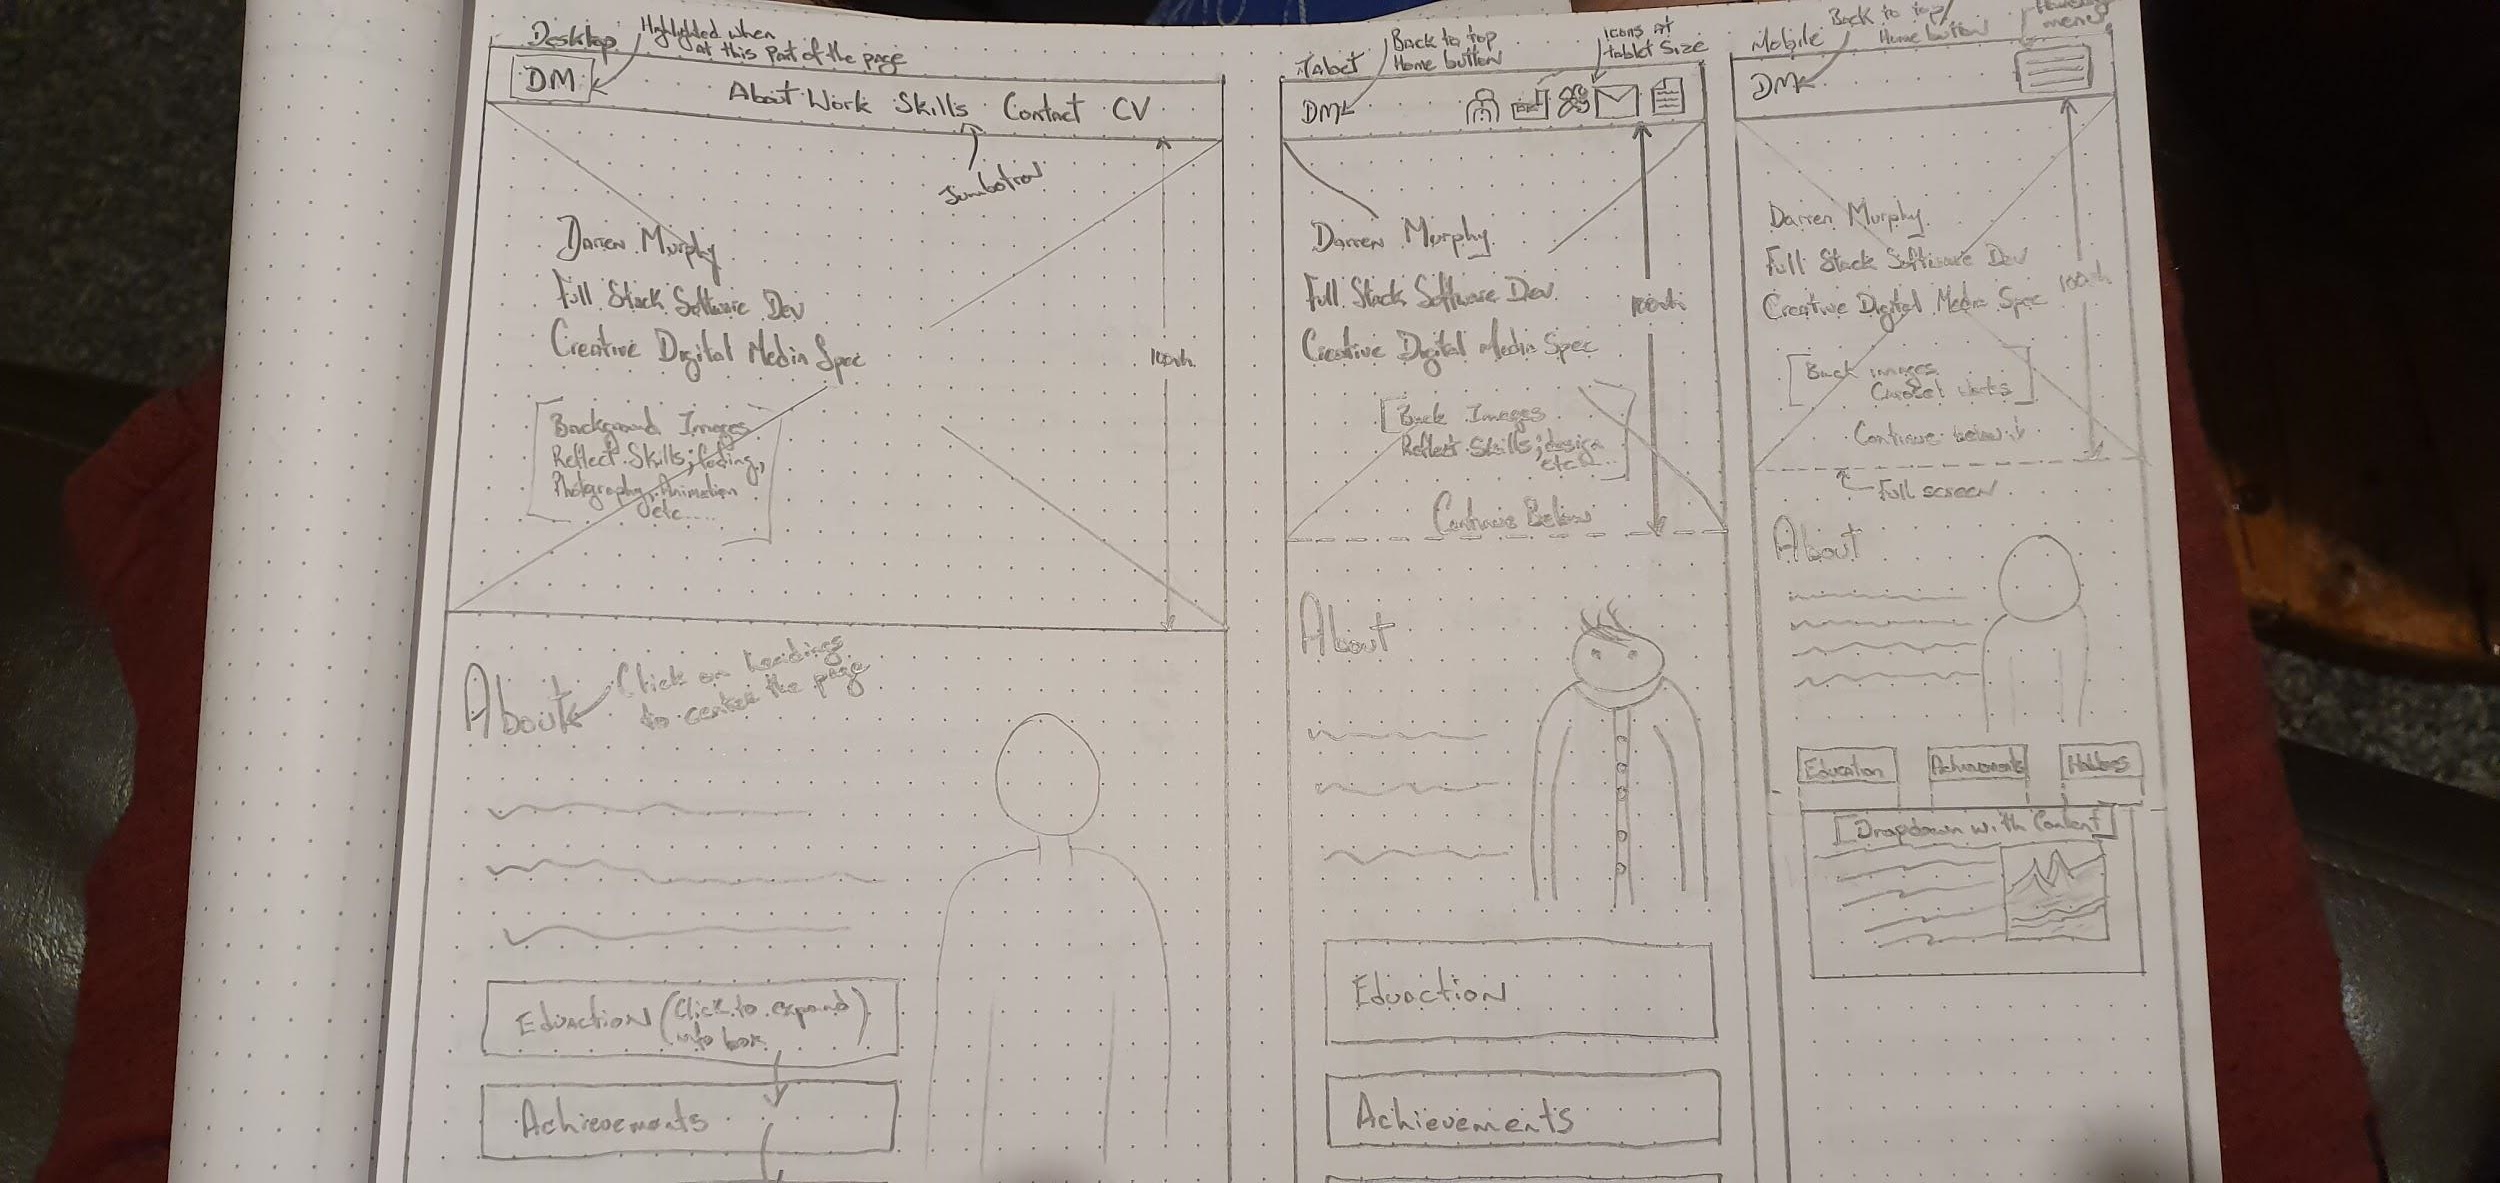 Desktop
Highlighted when
at this part of the page
DM
About Work Skills Contact CV
Jumbotron
Darren Murphy
Full Stack Software Dev
Creative Digital Media Spec
100vh
Background Images
Reflect Skills; Coding,
Photography, Animation
etc....
About
Click on headings
to center the page
Eduaction (Click to expand
into box)
Achievements
Tablet
Back to top
Home button
icons at
tablet size
DM
Darren Murphy
Full Stack Software Dev
Creative Digital Media Spec
100vh
Back Images
Reflect Skills; design
etc...
Continue Below
About
Eduaction
Achievements
Mobile
Back to top/
Home button
menu
DM
Darren Murphy
Full Stack Software Dev
Creative Digital Media Spec
100vh
Back images
Continue below
Full screen
About
Education
Achievements
Hobbies
[Dropdown with Content]